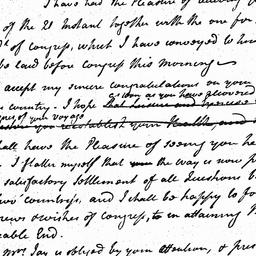 I have had the Pleasure of
of the 21 Instant together with the one for
of congress, which I have conveyed to
be laid before congress this morning
accept my sincere congratulations on your
as soon as you have recovered
country. I hope that
of your voyage
you reestablish your Health, and
shall have the Pleasure of seeing you he
I flatter myself that the way is now
satisfactory Settlement of all Questions b
countrys, and I shall be happy to fo
views & wishes of congress, in attaining
able End.
Mrs Jay is obliged by your attention, & pres